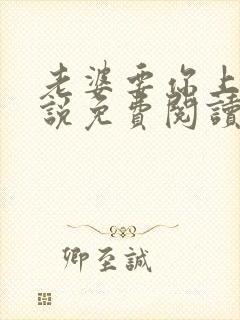 老婆要你上
說免費閱讀
卿至誠